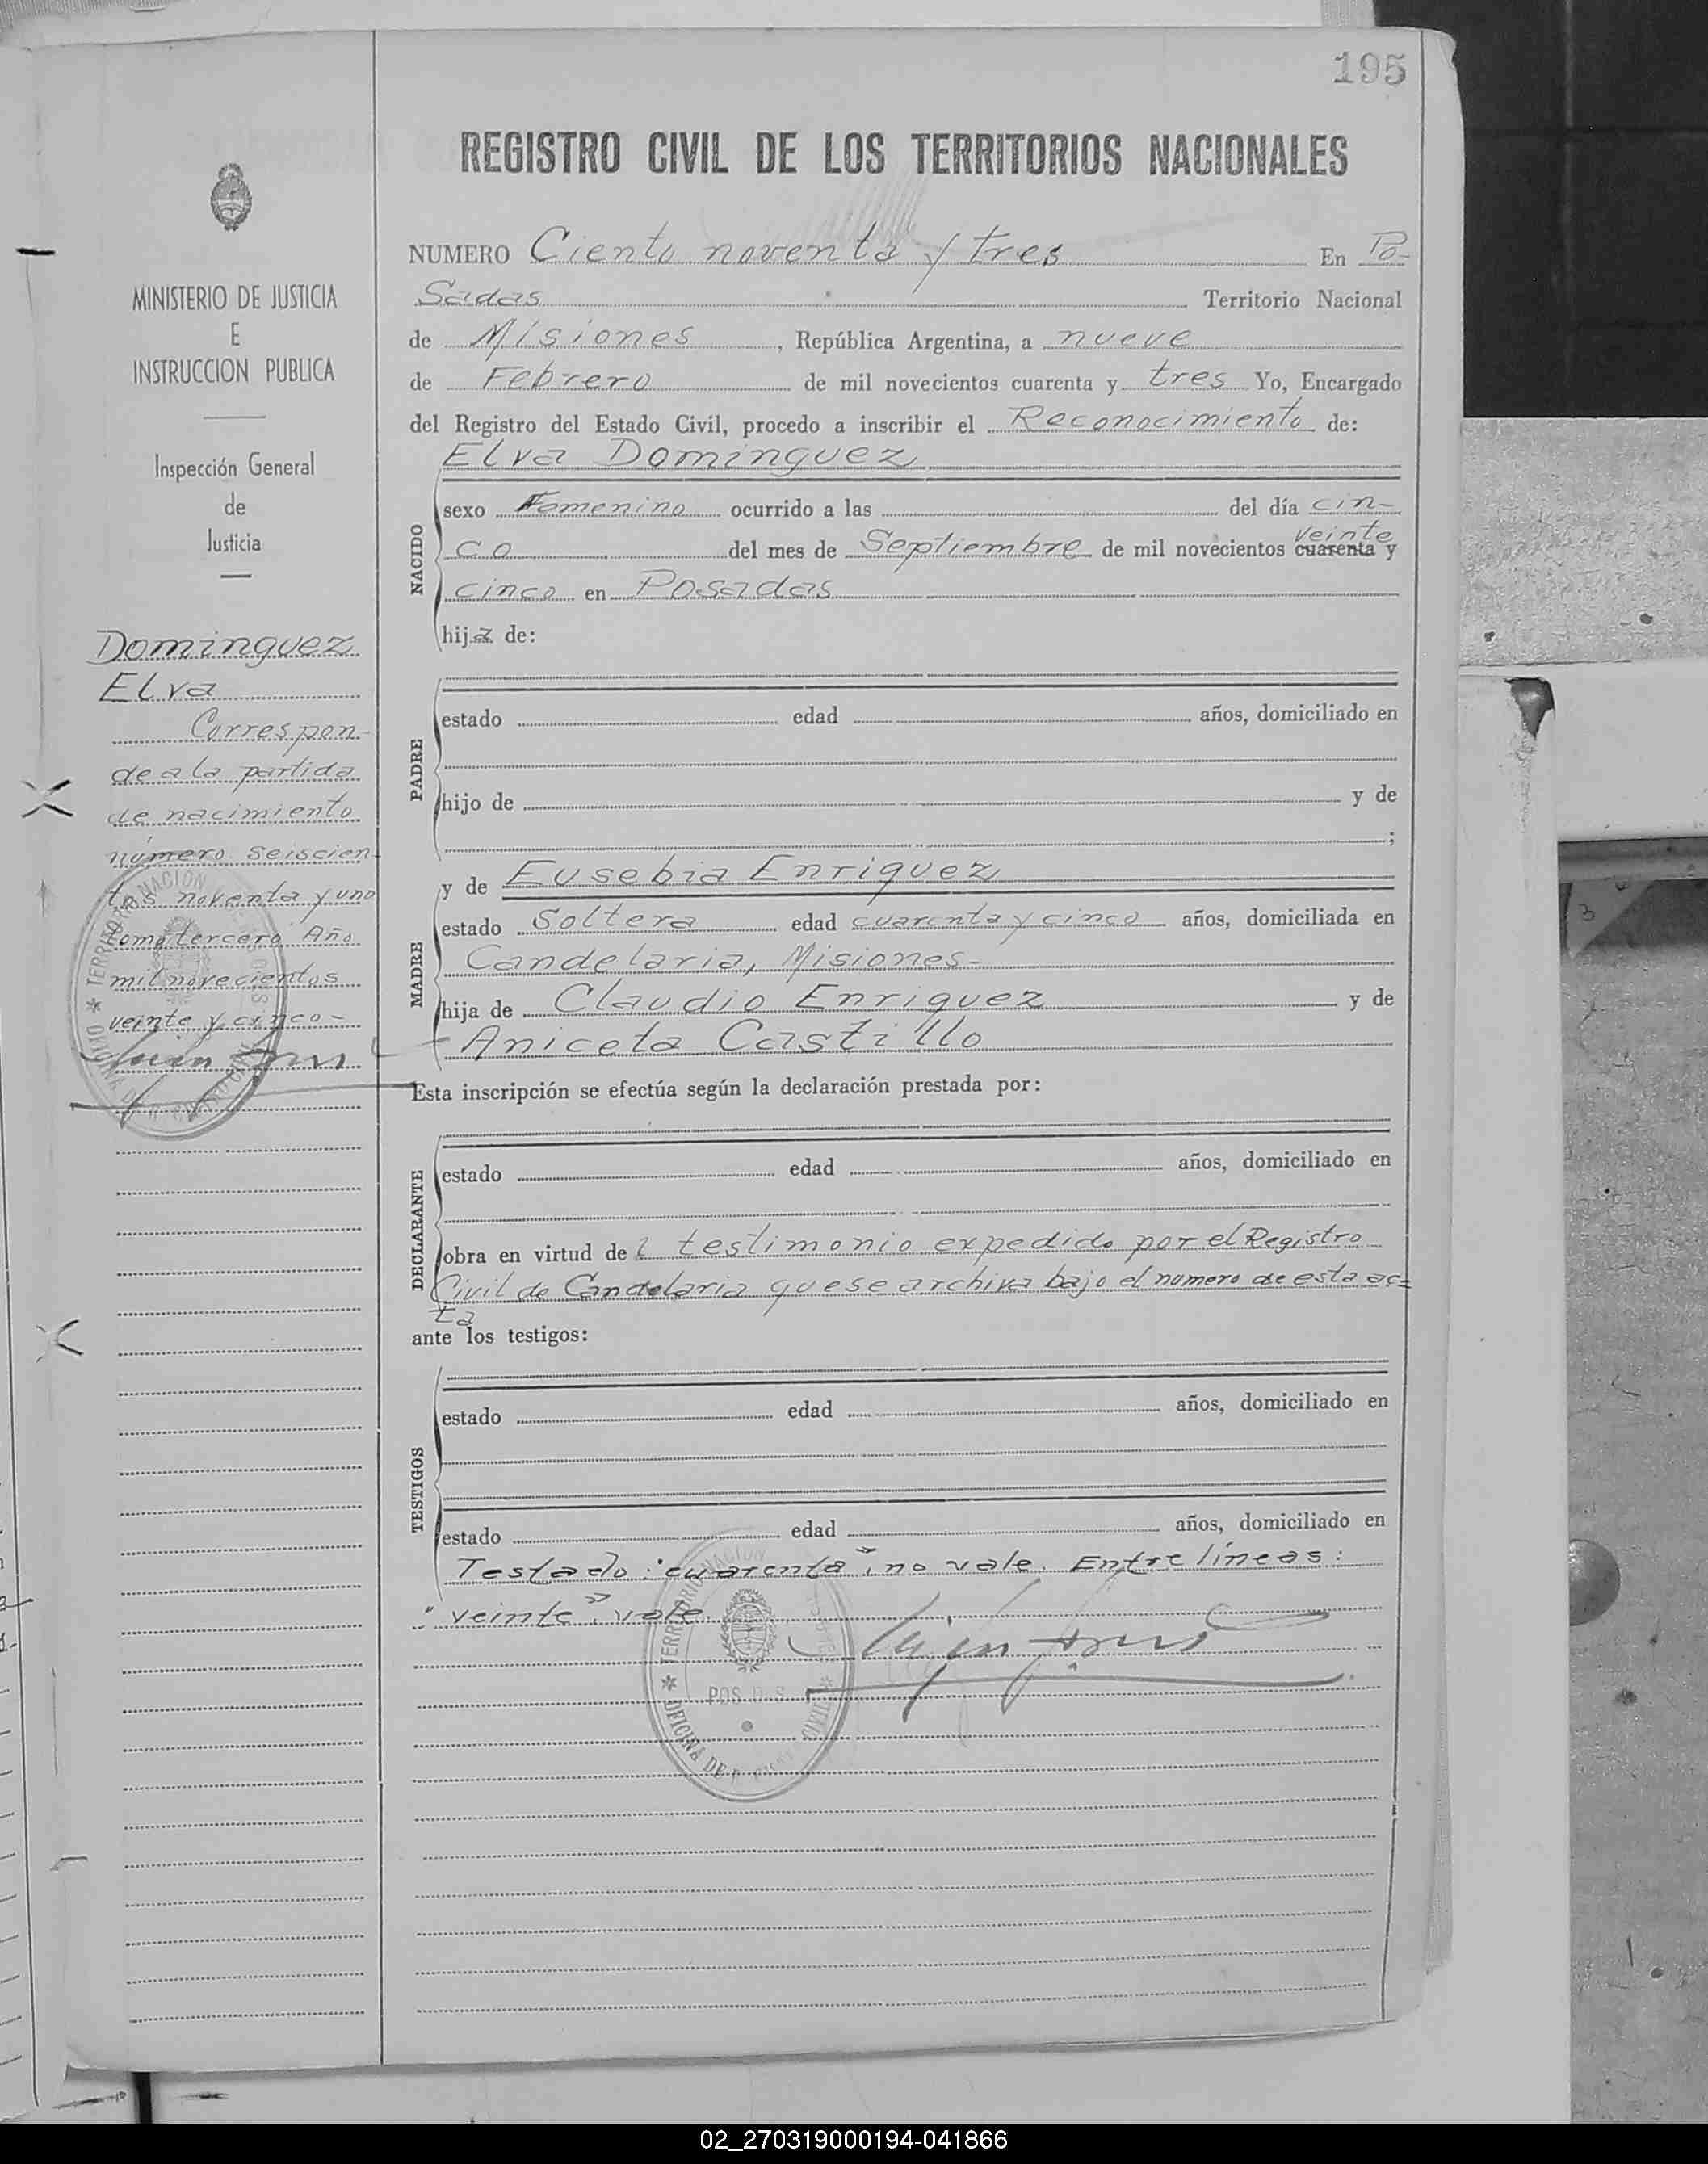 195
REGISTRO CIVIL DE LOS TERRITORIOS NACIONALES
MINISTERIO DE JUSTICIA
E
INSTRUCCION PUBLICA
Inspección General
de
Justicia
Dominguez
Elva
Correspon-
de a la partida
de nacimiento
número seiscien-
tos noventa y uno
tomo tercero Año
mil novecientos
veinte y cinco-
NUMERO Ciento noventa y tres En Po-
sadas Territorio Nacional
de Misiones, República Argentina, a nueve
de Febrero de mil novecientos cuarenta y tres Yo, Encargado
del Registro del Estado Civil, procedo a inscribir el Reconocimiento de:
Elva Dominguez
NACIDO
sexo Femenino ocurrido a las del día cin-
veinte
co del mes de Septiembre de mil novecientos cuarenta y
cinco en Posadas
hija de:
PADRE
estado edad años, domiciliado en
hijo de y de
;
MADRE
y de Eusebia Enriquez
estado Soltera edad cuarenta y cinco años, domiciliada en
Candelaria, Misiones-
hija de Claudio Enriquez y de
Aniceta Castillo
Esta inscripción se efectúa según la declaración prestada por:
DECLARANTE
estado edad años, domiciliado en
obra en virtud del testimonio expedido por el Registro
Civil de Candelaria que se archiva bajo el numero de esta ac-
ta
ante los testigos:
TESTIGOS
estado edad años, domiciliado en
estado edad años, domiciliado en
Testado: "cuarenta", no vale. Entre líneas:
"veinte", vale
TERRITORIO NACION
OFICINA DE CIVIL
3
02_270319000194-041866